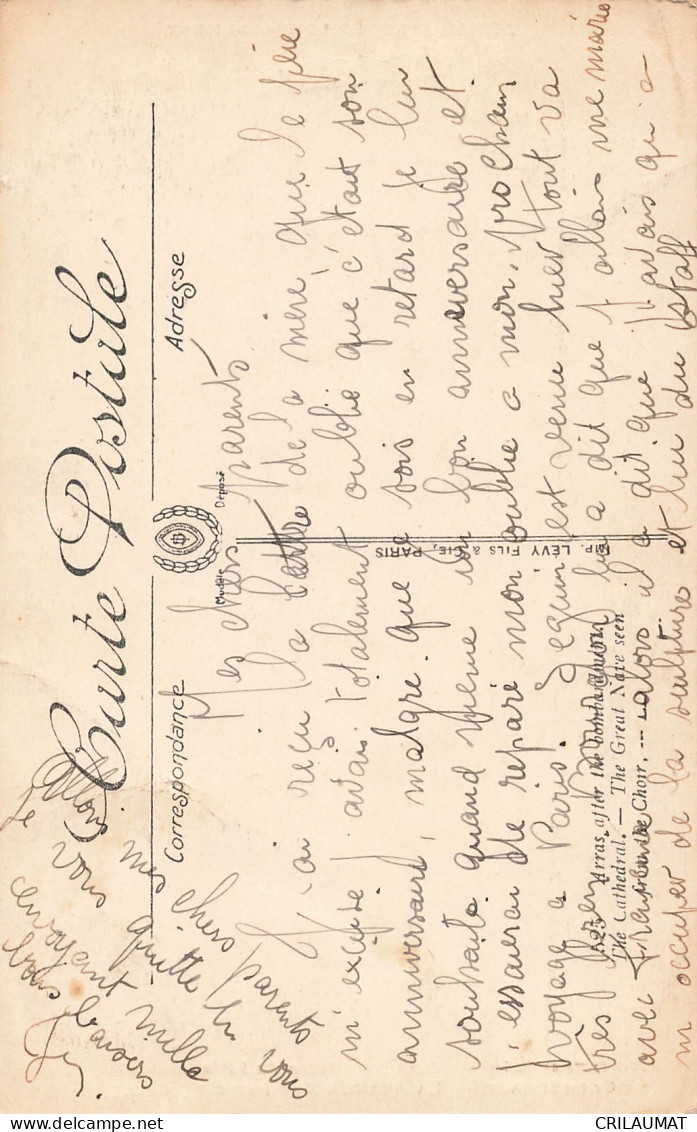 Carte Postale
Correspondance
Adresse
Modèle
Déposé
Mes chers parents
J'ai reçu la lettre de la mère que le père
m'excuse j'avais totalement oublie que c'était son
anniversaire, malgre que je sois en retard je lui
souhaite quand meme un bon anniversaire et
j'essaierai de reparé mon oublie a mon prochain
voyage a Paris. Jequin est venu hier tout va
très bien lui a dit que j'allais me marie
avec alors il a dit que j'avais qu'a
m occuper de la sculpture et lui du staff
Allons
mes chers parents
je vous quitte en vous
envoyant mille
bons baisers
IMP. LÉVY FILS & CIE, PARIS
523 Arras, after the bombardment
The Cathedral. — The Great Nave seen
from the Choir. —
CRILAUMAT